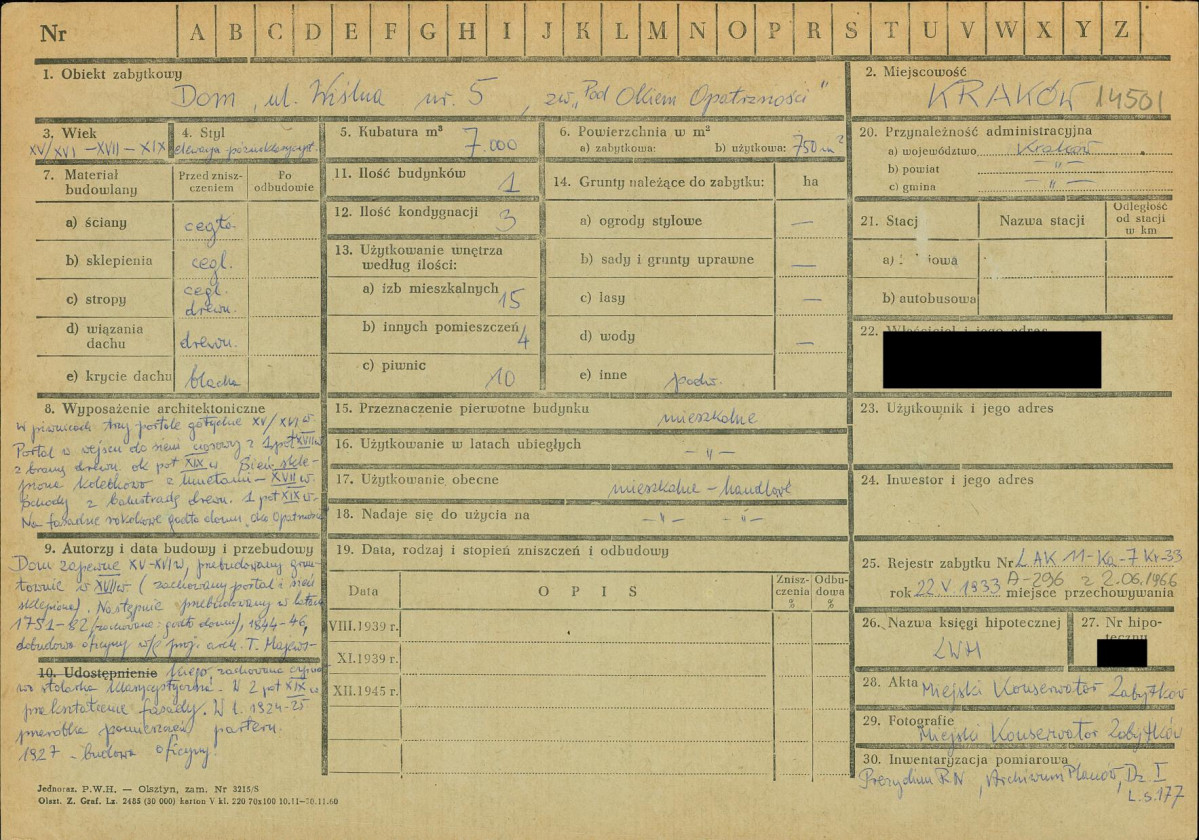 Nr A B C D E F G H I J K L M N O P R S T U V W X Y Z
1. Obiekt zabytkowy
Dom, ul. Wiślna nr. 5, zw. „Pod Okiem Opatrzności"
2. Miejscowość
KRAKÓW 14501
3. Wiek
XV/XVI – XVII – XIX
4. Styl
elewacja późnoklasycyst.
5. Kubatura m³
7.000
6. Powierzchnia w m²
a) zabytkowa: b) użytkowa: 750 m²
7. Materiał budowlany
Przed znisz-
czeniem
Po
odbudowie
a) ściany cegła
b) sklepienia cegl.
c) stropy cegl.
drewn.
d) wiązania
dachu drewn.
e) krycie dachu blacha
8. Wyposażenie architektoniczne
W piwnicach trzy portale gotyckie XV/XVI w.
Portal w wejściu do sieni ciosowy z 1 poł XVII w
z bramą drewn. ok poł XIX w. Sień skle-
piona kolebkowo z lunetami – XVII w.
Schody z balustradą drewn. 1 poł XIX w.
Na fasadzie rokokowe godło domu, Oko Opatrzności
9. Autorzy i data budowy i przebudowy
Dom zapewne XV-XVI w, przebudowany grun-
townie w XVII w (zachowany portal i sień
sklepiona). Następnie przebudowany w latach
1751-82 (zachowane: godło domu), 1844-46,
dobudowa oficyny w/g proj. arch. T. Majews-
10. Udostępnienie
kiego, zachowana
stolarka klasycystyczna. W 2 poł XIX w
przekształcenie fasady. W l. 1924-25
przeróbka pomieszczeń parteru.
1927 – budowa oficyny.
11. Ilość budynków 1
12. Ilość kondygnacji 3
13. Użytkowanie wnętrza
według ilości:
a) izb mieszkalnych 15
b) innych pomieszczeń 4
c) piwnic 10
14. Grunty należące do zabytku: ha
a) ogrody stylowe —
b) sady i grunty uprawne —
c) lasy —
d) wody —
e) inne podw.
15. Przeznaczenie pierwotne budynku mieszkalne
16. Użytkowanie w latach ubiegłych – „ –
17. Użytkowanie obecne mieszkalne – handlowe
18. Nadaje się do użycia na – „ – – „ –
19. Data, rodzaj i stopień zniszczeń i odbudowy
Data OPIS Znisz-
czenia
% Odbu-
dowa
%
VIII.1939 r.
XI.1939 r.
XII.1945 r.
20. Przynależność administracyjna
a) województwo Kraków
b) powiat – „ –
c) gmina – „ –
21. Stacj Nazwa stacji Odległość
od stacji
w km
a)
b) autobusowa
22. Właściciel i jego adres
23. Użytkownik i jego adres
24. Inwestor i jego adres
25. Rejestr zabytku Nr L AK 11-Ka-7 Kr-33
rok 22 V 1933 A-296 z 2.06.1966
miejsce przechowywania
26. Nazwa księgi hipotecznej
LWH
27. Nr hipo-
teczny
28. Akta Miejski Konserwator Zabytków
29. Fotografie
Miejski Konserwator Zabytków
30. Inwentaryzacja pomiarowa
Prezydium RN, Archiwum Planów, Dz. I
L.s. 177
Jednoraz. P.W.H. — Olsztyn, zam. Nr 3215/S
Olszt. Z. Graf. Lz. 2485 (30 000) karton V kl. 220 70x100 10.11-30.11.60